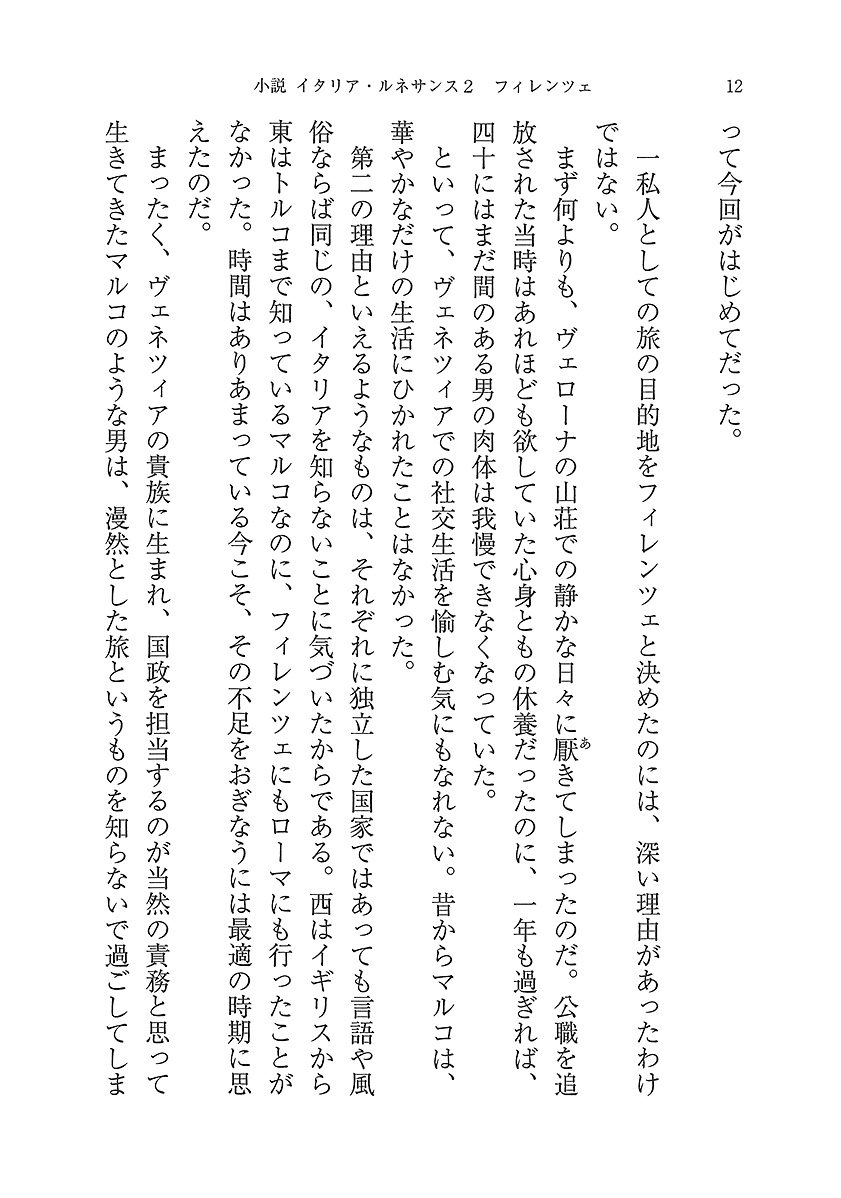 小説 イタリア・ルネサンス2　フィレンツェ
12
って今回がはじめてだった。
一私人としての旅の目的地をフィレンツェと決めたのには、深い理由があったわけ
ではない。
まず何よりも、ヴェローナの山荘での静かな日々に厭きてしまったのだ。公職を追
あ
放された当時はあれほども欲していた心身ともの休養だったのに、一年も過ぎれば、
四十にはまだ間のある男の肉体は我慢できなくなっていた。
といって、ヴェネツィアでの社交生活を愉しむ気にもなれない。昔からマルコは、
華やかなだけの生活にひかれたことはなかった。
第二の理由といえるようなものは、それぞれに独立した国家ではあっても言語や風
俗ならば同じの、イタリアを知らないことに気づいたからである。西はイギリスから
東はトルコまで知っているマルコなのに、フィレンツェにもローマにも行ったことが
なかった。時間はありあまっている今こそ、その不足をおぎなうには最適の時期に思
えたのだ。
まったく、ヴェネツィアの貴族に生まれ、国政を担当するのが当然の責務と思って
生きてきたマルコのような男は、漫然とした旅というものを知らないで過ごしてしま